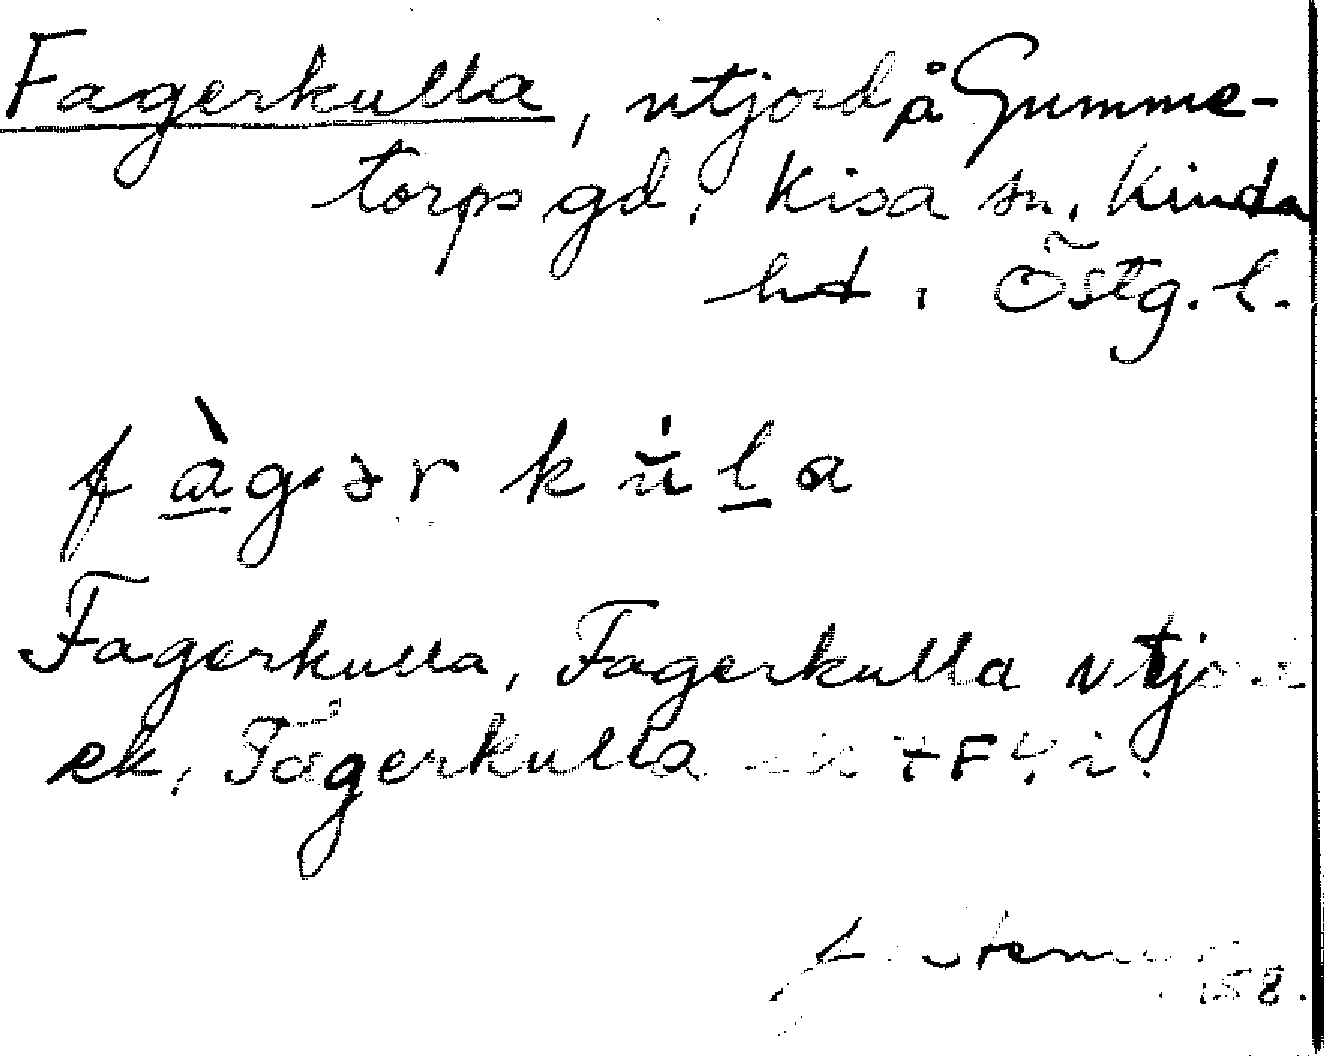 Fagerkulla, utjord å Gumme-
torps gd, Kisa sn, Kinda
hd, Östg. l.
fàgərkúla
Fagerkulla, Fagerkulla utjord
ek,